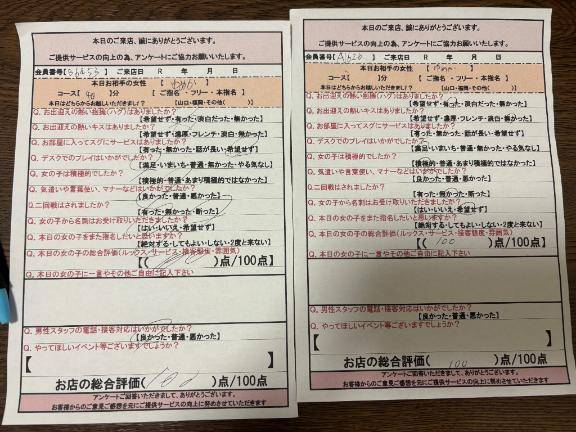 本日のご来店、誠にありがとうございます。
ご提供サービスの向上の為、アンケートにご協力お願いいたします。
会員番号【 】 ご来店日 R 年 月 日
本日お相手の女性 【 】
コース【 90 】分 【 ご指名 ・ フリー ・ 本指名 】
本日はどちらからお越しいただきました? 【山口・福岡・その他( )】
Q. お出迎えの熱い抱擁(ハグ)はありましたか?
【希望せず・有った・淡白だった・無かった】
Q. お出迎えの熱いキスはありましたか?
【希望せず・濃厚・フレンチ・淡白・無かった】
Q. お部屋に入ってスグにサービスはありましたか?
【有った・無かった・話が長い・希望せず】
Q. デスクでのプレイはいかがでしたか?
【満足・いまいち・普通・無かった・やる気なし】
Q. 女の子は積極的でしたか?
【積極的・普通・あまり積極的ではなかった】
Q. 気遣いや言葉使い、マナーなどはいかがでしたか?
【良かった・普通・悪かった】
Q. 二回戦はされましたか?
【有った・無かった・断った】
Q. 女の子から名刺はお受け取りいただきましたか?
【はい・いいえ・希望せず】
Q. 本日の女の子をまた指名したいと思いますか?
【絶対する・してもよい・しない・2度と来ない】
Q. 本日の女の子の総合評価(ルックス・サービス・接客態度・雰囲気)
【( )点/100点
Q. 本日の女の子に一言やその他ご自由に記入下さい
Q. 男性スタッフの電話・接客対応はいかがでしたか?
【良かった・普通・悪かった】
Q. やってほしいイベント等ございますでしょうか?
【 】
お店の総合評価( 100 )点/100点
アンケートご回答いただきまして、ありがとうございます。
お客様からのご意見ご感想を元にご提供サービスの向上に努めさせていただきます
本日のご来店、誠にありがとうございます。
ご提供サービスの向上の為、アンケートにご協力お願いいたします。
会員番号【 】 ご来店日 R 年 月 日
本日お相手の女性 【 】
コース【 】分 【 ご指名 ・ フリー ・ 本指名 】
本日はどちらからお越しいただきました? 【山口・福岡・その他( )】
Q. お出迎えの熱い抱擁(ハグ)はありましたか?
【希望せず・有った・淡白だった・無かった】
Q. お出迎えの熱いキスはありましたか?
【希望せず・濃厚・フレンチ・淡白・無かった】
Q. お部屋に入ってスグにサービスはありましたか?
【有った・無かった・話が長い・希望せず】
Q. デスクでのプレイはいかがでしたか?
【満足・いまいち・普通・無かった・やる気なし】
Q. 女の子は積極的でしたか?
【積極的・普通・あまり積極的ではなかった】
Q. 気遣いや言葉使い、マナーなどはいかがでしたか?
【良かった・普通・悪かった】
Q. 二回戦はされましたか?
【有った・無かった・断った】
Q. 女の子から名刺はお受け取りいただきましたか?
【はい・いいえ・希望せず】
Q. 本日の女の子をまた指名したいと思いますか?
【絶対する・してもよい・しない・2度と来ない】
Q. 本日の女の子の総合評価(ルックス・サービス・接客態度・雰囲気)
【( 100 )点/100点
Q. 本日の女の子に一言やその他ご自由に記入下さい
Q. 男性スタッフの電話・接客対応はいかがでしたか?
【良かった・普通・悪かった】
Q. やってほしいイベント等ございますでしょうか?
【 】
お店の総合評価( 100 )点/100点
アンケートご回答いただきまして、ありがとうございます。
お客様からのご意見ご感想を元にサービスの向上に努めさせていただきます